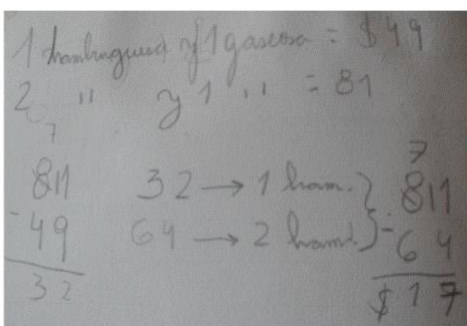 1 hamburguesa y 1 gaseosa = $49
2 " y 1 " = 81
7
811
- 49
32
32 → 1 ham.
64 → 2 ham.
7
811
- 64
$ 17